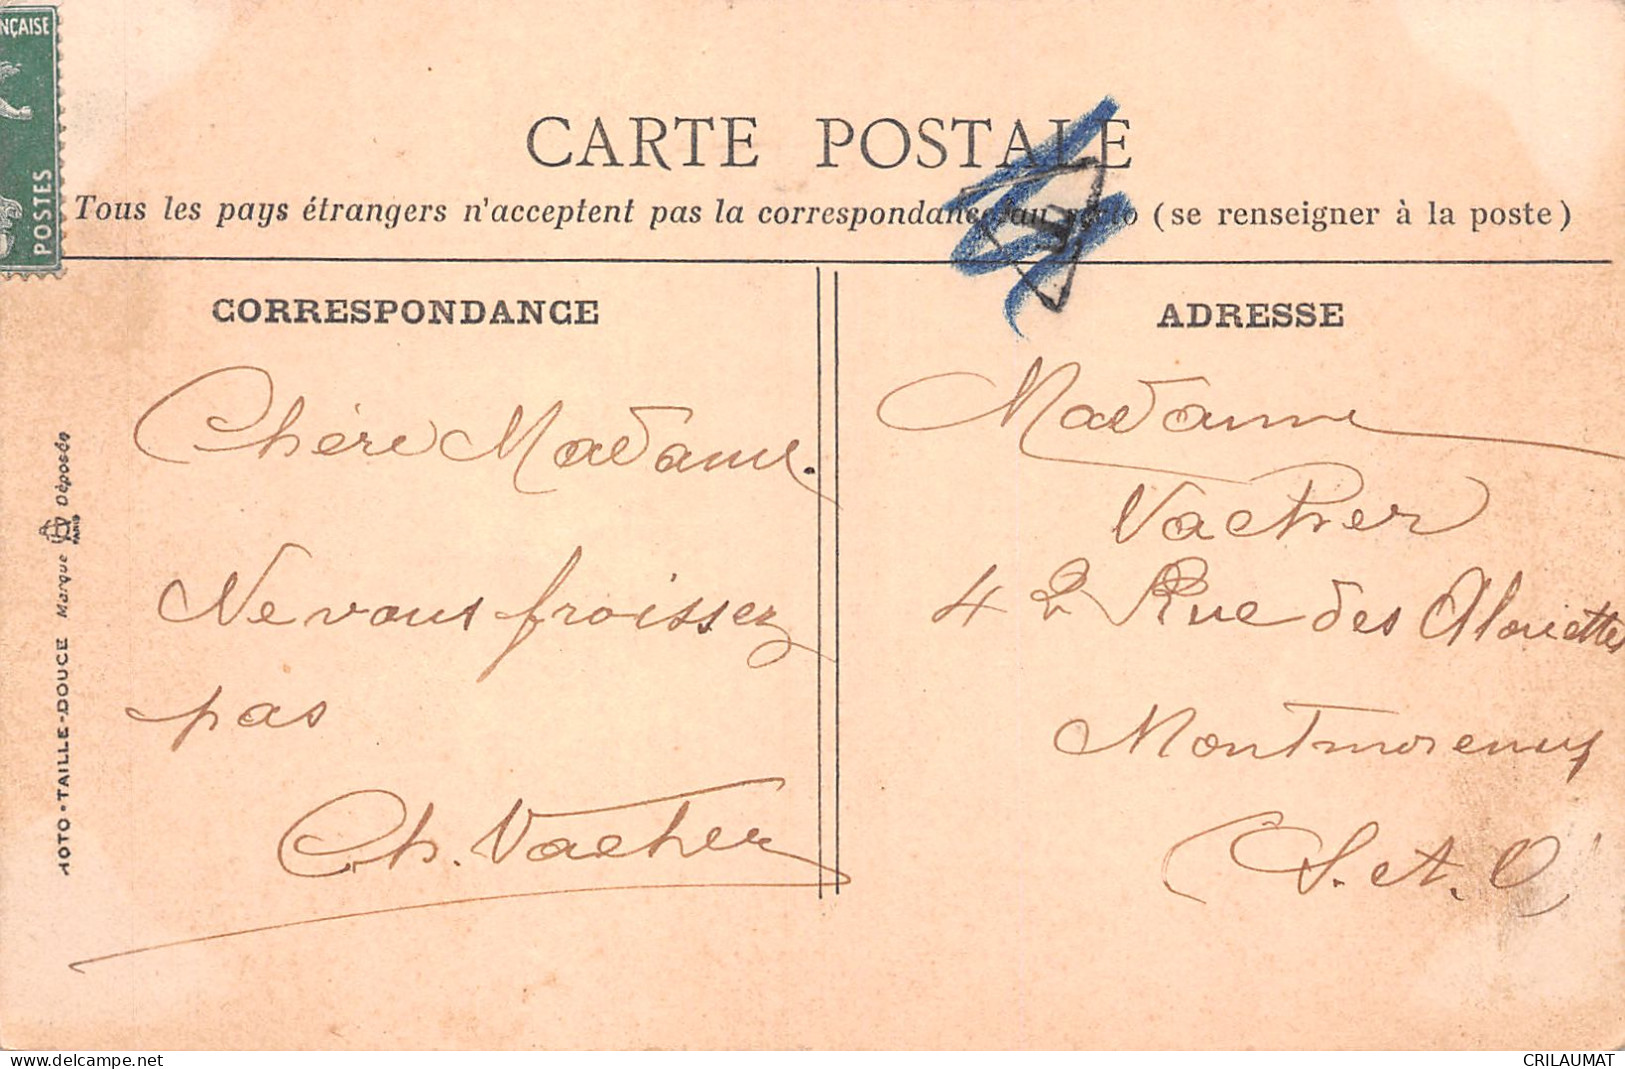 NÇAISE
POSTES
CARTE POSTALE
Tous les pays étrangers n'acceptent pas la correspondance au recto (se renseigner à la poste)
T
CORRESPONDANCE
Chère Madame.
Ne vous froissez
pas
Ch. Vacher
ADRESSE
Madame
Vacher
42 Rue des Alouettes
Montmorency
(S. et. O)
HOTO-TAILLE-DOUCE Marque PARIS Déposée
delcampe.net
CRILAUMAT